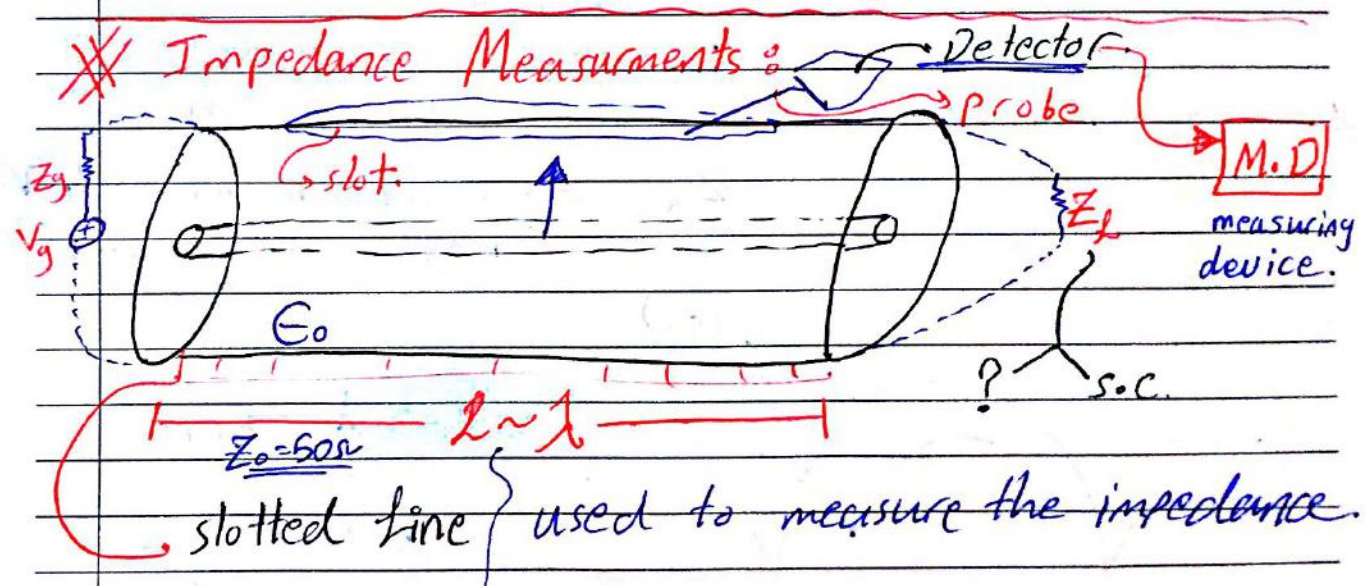 Impedance Measurments :
Detector
probe
M.D
measuring
device.
slot.
Zg
Vg
ZL
Є0
? S.C.
L ~ λ
Z0=50Ω
slotted line } used to measure the impedance.